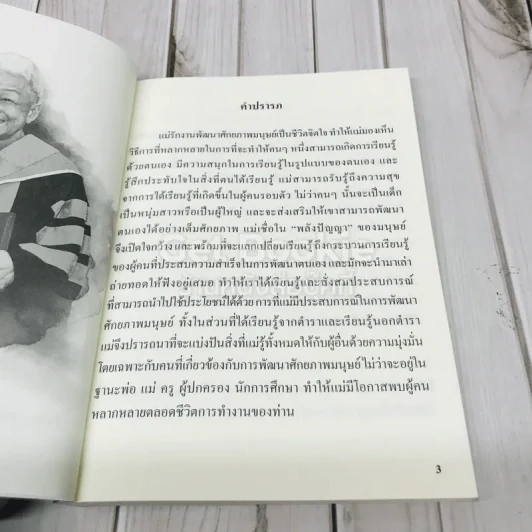 คำปรารภ
แม่รักงานพัฒนาศักยภาพมนุษย์เป็นชีวิตจิตใจ ทำให้แม่มองเห็น
วิธีการที่หลากหลายในการที่จะทำให้คนๆ หนึ่งสามารถเกิดการเรียนรู้
ด้วยตนเอง มีความสนุกในการเรียนรู้ในรูปแบบของตนเอง และ
รู้สึกประทับใจในสิ่งที่ตนได้เรียนรู้ แม่สามารถรับรู้ถึงความสุข
จากการได้เรียนรู้ที่เกิดขึ้นในผู้คนรอบตัว ไม่ว่าคนๆ นั้นจะเป็นเด็ก
เป็นหนุ่มสาวหรือเป็นผู้ใหญ่ และจะส่งเสริมให้เขาสามารถพัฒนา
ตนเองได้อย่างเต็มศักยภาพ แม่เชื่อใน "พลังปัญญา" ของมนุษย์
จึงเปิดใจกว้างและพร้อมที่จะแลกเปลี่ยนเรียนรู้ ถึงกระบวนการเรียนรู้
ของผู้คนที่ประสบความสำเร็จในการพัฒนาตนเอง และมักจะนำมาเล่า
ถ่ายทอดให้ฟังอยู่เสมอ ทำให้เราได้เรียนรู้และสั่งสมประสบการณ์
ที่สามารถนำไปใช้ประโยชน์ได้ด้วยการที่แม่มีประสบการณ์ในการพัฒนา
ศักยภาพมนุษย์ ทั้งในส่วนที่ได้เรียนรู้จากตำราและเรียนรู้นอกตำรา
แม่จึงปรารถนาที่จะแบ่งปันสิ่งที่แม่รู้ทั้งหมดให้กับผู้อื่นด้วยความมุ่งมั่น
โดยเฉพาะกับคนที่เกี่ยวข้องกับการพัฒนาศักยภาพมนุษย์ไม่ว่าจะอยู่ใน
ฐานะพ่อ แม่ ครู ผู้ปกครอง นักการศึกษา ทำให้แม่มีโอกาสพบผู้คน
หลากหลายตลอดชีวิตการทำงานของท่าน
3